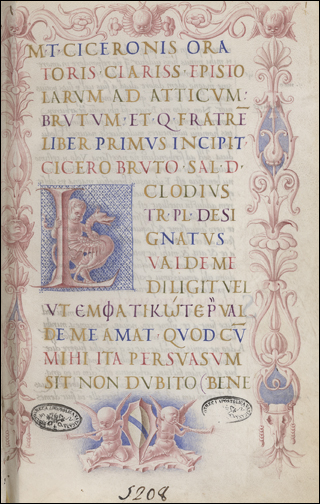 M·T·CICERONIS ORA
TORIS CLARISS·EPISTO
LARVM AD ATTICVM·
BRVTVM·ET·Q·FRATRĒ
LIBER PRIMVS INCIPIT·
CICERO BRVTO·SAL·D·
L CLODIVS
TR·PL·DESI
GNATVS
VALDE ME
DILIGIT VEL
VT VAL
DE ME AMAT·QVOD CV̄
MIHI ITA PERSVASVM
SIT NON DVBITO (BENE
5208